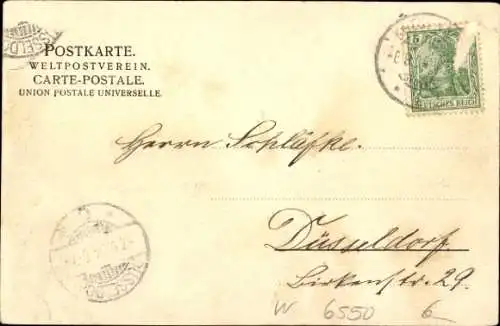 POSTKARTE.
WELTPOSTVEREIN.
CARTE-POSTALE.
UNION POSTALE UNIVERSELLE.
5
DEUTSCHES REICH
Herrn Schläfke.
Düsseldorf.
Birkenstr. 29.
W 6550 6